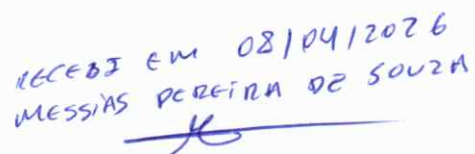 RECEBI EM 08/04/2026
MESSIAS PEREIRA DE SOUZA